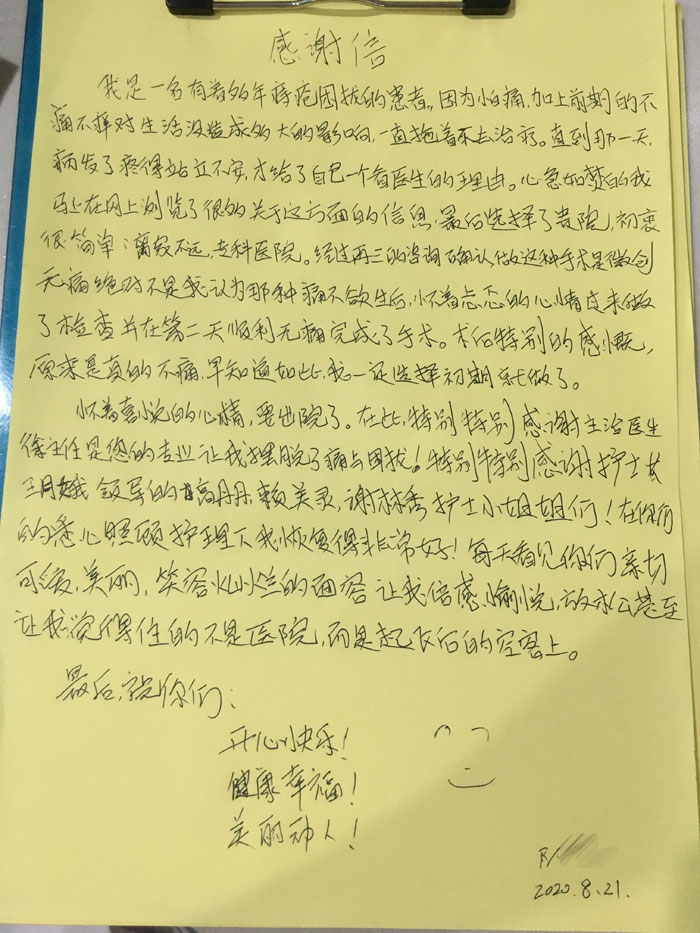 感谢信
我是一名有着多年痔疮困扰的患者。因为怕痛,加上前期的不
痛不痒对生活没造成多大的影响,一直拖着不去治疗。直到那一天,
病发了疼得站立不安,才给了自己一个看医生的理由。心急如焚的我
马上在网上浏览了很多关于这方面的信息,最后选择了贵院,初衷
很简单:离家不远,专科医院。经过再三的咨询确认做这种手术是微创
无痛绝对不是我认为那种痛不欲生后,怀着忐忑的心情过来做
了检查并在第二天顺利无痛完成了手术。术后特别的感慨,
原来是真的不痛,早知道如此,我一定选择初期就做了。
怀着喜悦的心情,要出院了。在此,特别特别感谢主治医生
徐主任是您的专业让我摆脱了痛与困扰!特别特别感谢护士长
王月娥领导的高丹丹,赖美灵,谢林秀护士小姐姐们!在你们
的悉心照顾护理下我恢复得非常好!每天看见你们亲切
可爱,美丽,笑容灿烂的面容让我倍感愉悦,放松甚至
让我觉得住的不是医院,而是起飞后的空客上。
最后,祝你们:
开心快乐!
健康幸福!
美丽动人!
2020.8.21.